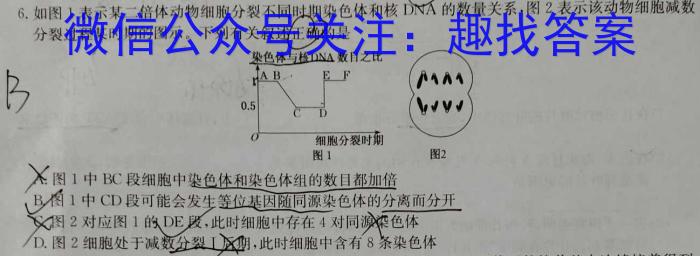 6. 如图1表示某二倍体动物细胞分裂不同时期染色体和核DNA的数量关系,图2表示该动物细胞减数
分裂
微信公众号关注：趣找答案
B
染色体与核DNA数目之比
1
A B
E F
0.5
C D
O
细胞分裂时期
图1
图2
A. 图1中BC段细胞中染色体和染色体组的数目都加倍
B. 图1中CD段可能会发生等位基因随同源染色体的分离而分开
C. 图2对应图1的DE段,此时细胞中存在4对同源染色体
D. 图2细胞处于减数分裂Ⅰ后期,此时细胞中含有8条染色体